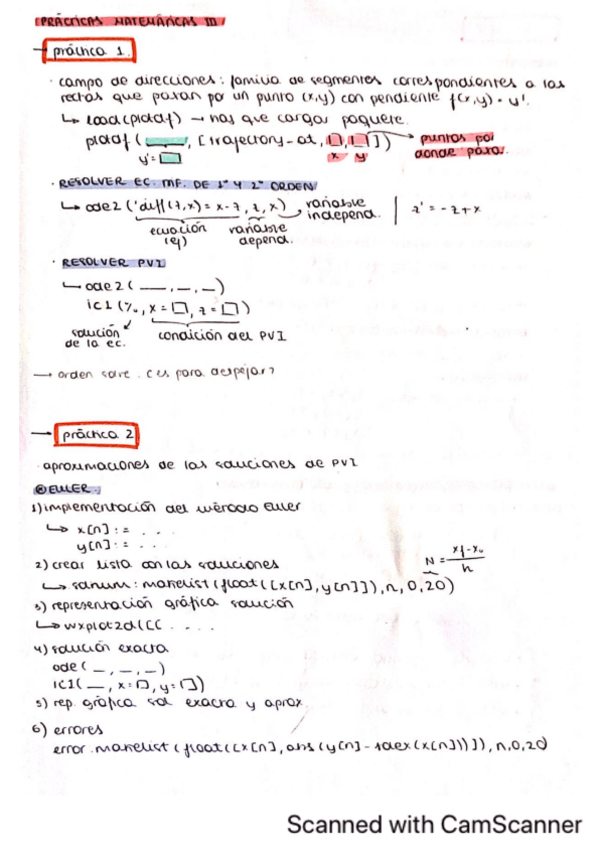 PRÁCTICAS MATEMÁTICAS III
→ práctica 1.
· campo de direcciones: familia de segmentos correspondientes a las
rectas que pasan por un punto (x,y) con pendiente f(x,y) = y'.
↳ load(plotdf) → hay que cargar paquete.
plotdf ( , [trajectory_at, , ]) puntos por
y'= x y donde pasa.
· RESOLVER EC. DIF. DE 1º Y 2º ORDEN
↳ ode2 ('diff(z,x) = x-z, z, x) variable independ. | z' = -z+x
ecuación variable
(ej) depend.
· RESOLVER PVI
↳ ode2 ( __, _, _)
ic1 (%, x = □, z = □)
solución condición del PVI
de la ec.
→ orden solve. ¿es para despejar?
→ práctica 2
· aproximaciones de las soluciones de PVI
EULER.
1) implementación del método Euler
↳ x[n] := . . .
y[n] := . . .
2) crear lista con las soluciones N = xf-x0 / h
↳ solnum: makelist (float([x[n], y[n]]), n, 0, 20)
3) representación gráfica solución
↳ wxplot2d([[ . . . .
4) solución exacta
ode ( _, _, _)
ic1( _, x=□, y=□)
5) rep. gráfica sol exacta y aprox.
6) errores
error: makelist (float([x[n], abs (y[n] - solex (x[n]))]), n, 0, 20
Scanned with CamScanner